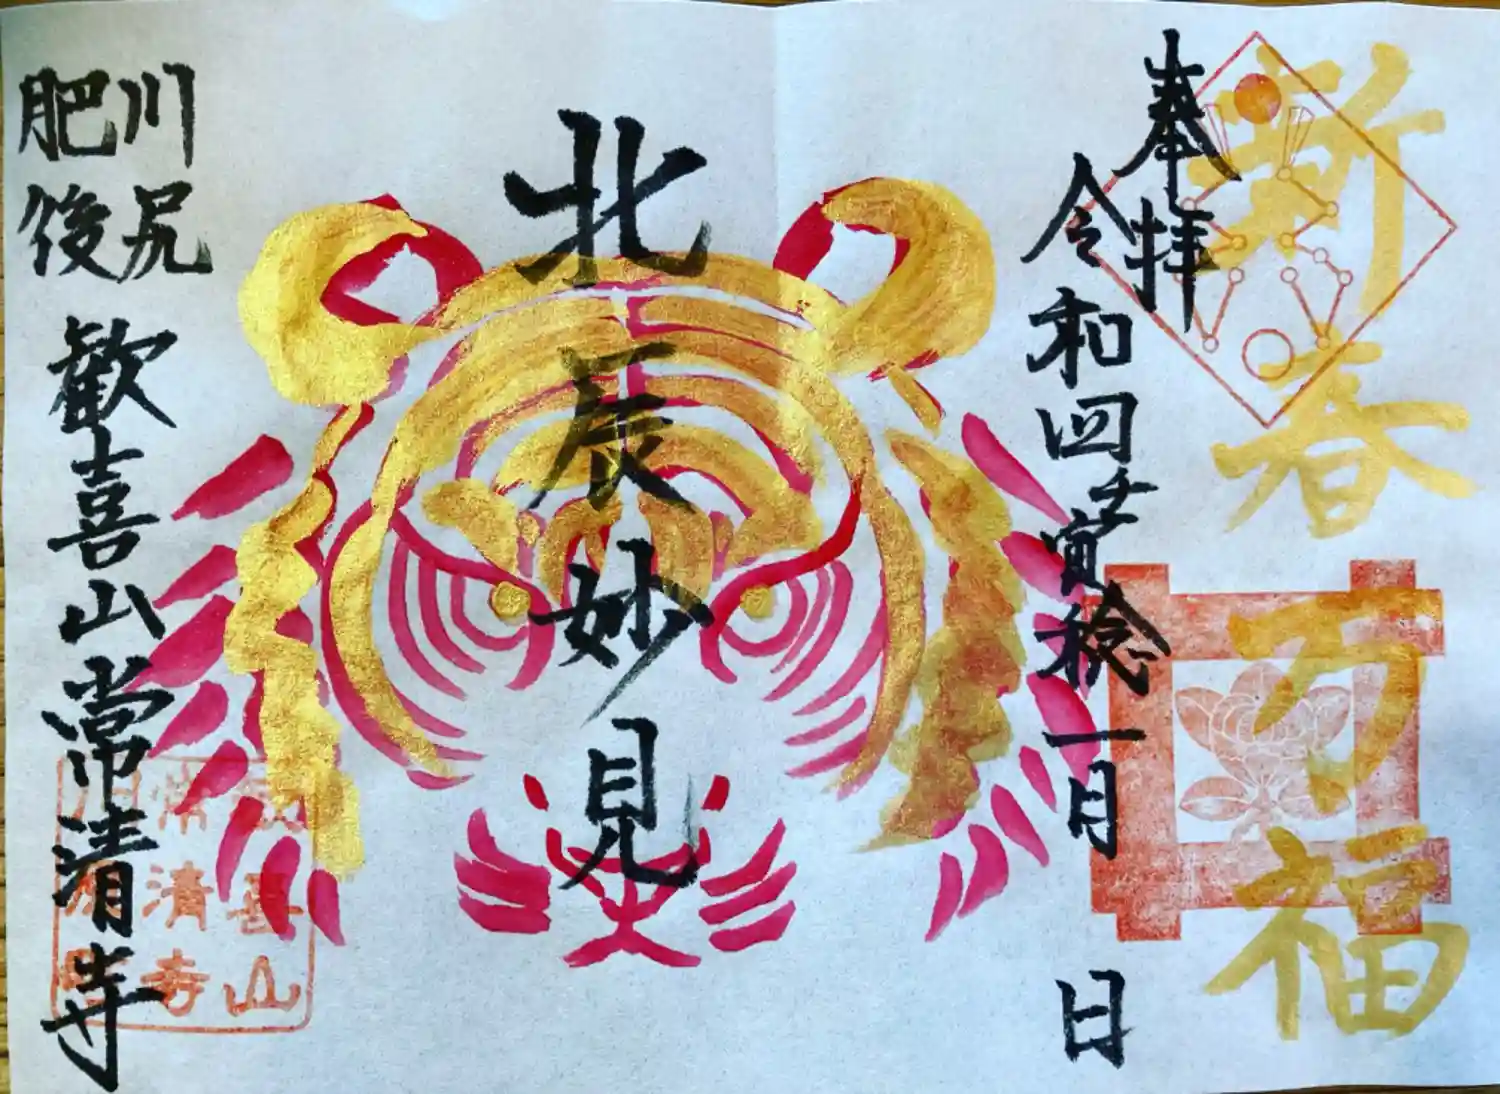 新春万福
奉拝
令和四壬寅稔一月 日
北辰妙見
肥後川尻
歓喜山常清寺